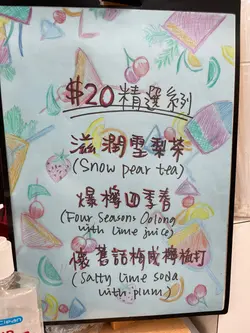 $20精選系列
滋潤雪梨茶
(Snow pear tea)
爆檸四季春
(Four Seasons Oolong
with lime juice)
懷舊話梅咸檸梳打
(Salty lime soda
with plum)
Clean